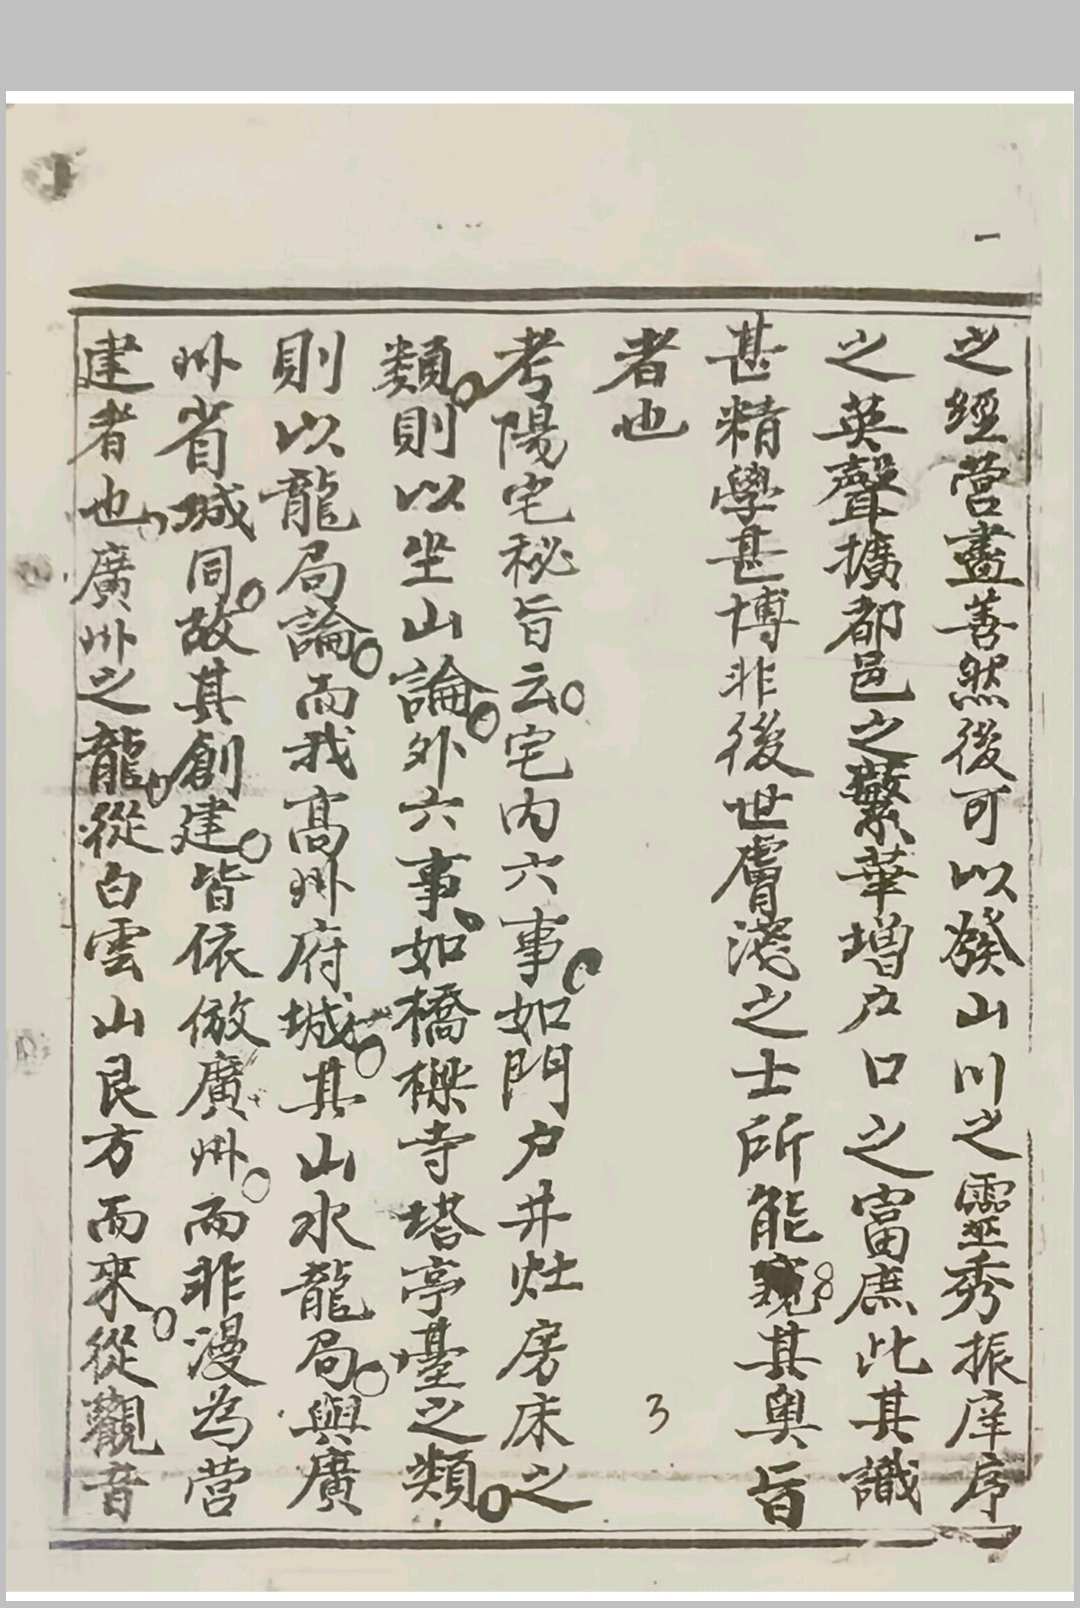 一
之經营盡善然後可以發山川之靈秀振庠序
之英聲擴都邑之繁華增户口之富庶此其識
甚精學甚博非後世膚淺之士所能窺其奥旨
者也
3
考陽宅秘旨云宅内六事如門户井灶房床之
類則以坐山論外六事如橋樑寺塔亭臺之類
則以龍局論而我高州府城其山水龍局與廣
州省城同故其創建皆依倣廣州而非漫為营
建者也廣州之龍從白雲山艮方而來從觀音